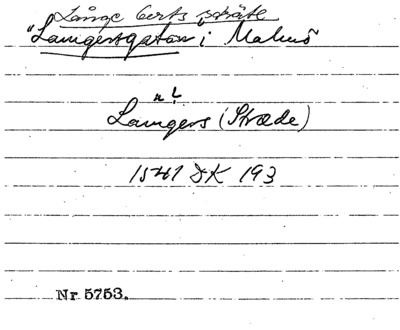 Långe Berts sträte
"Laungertgatan i Malmö"
n !
Laungers (Stræde)
1541 DK 193
Nr 5753.